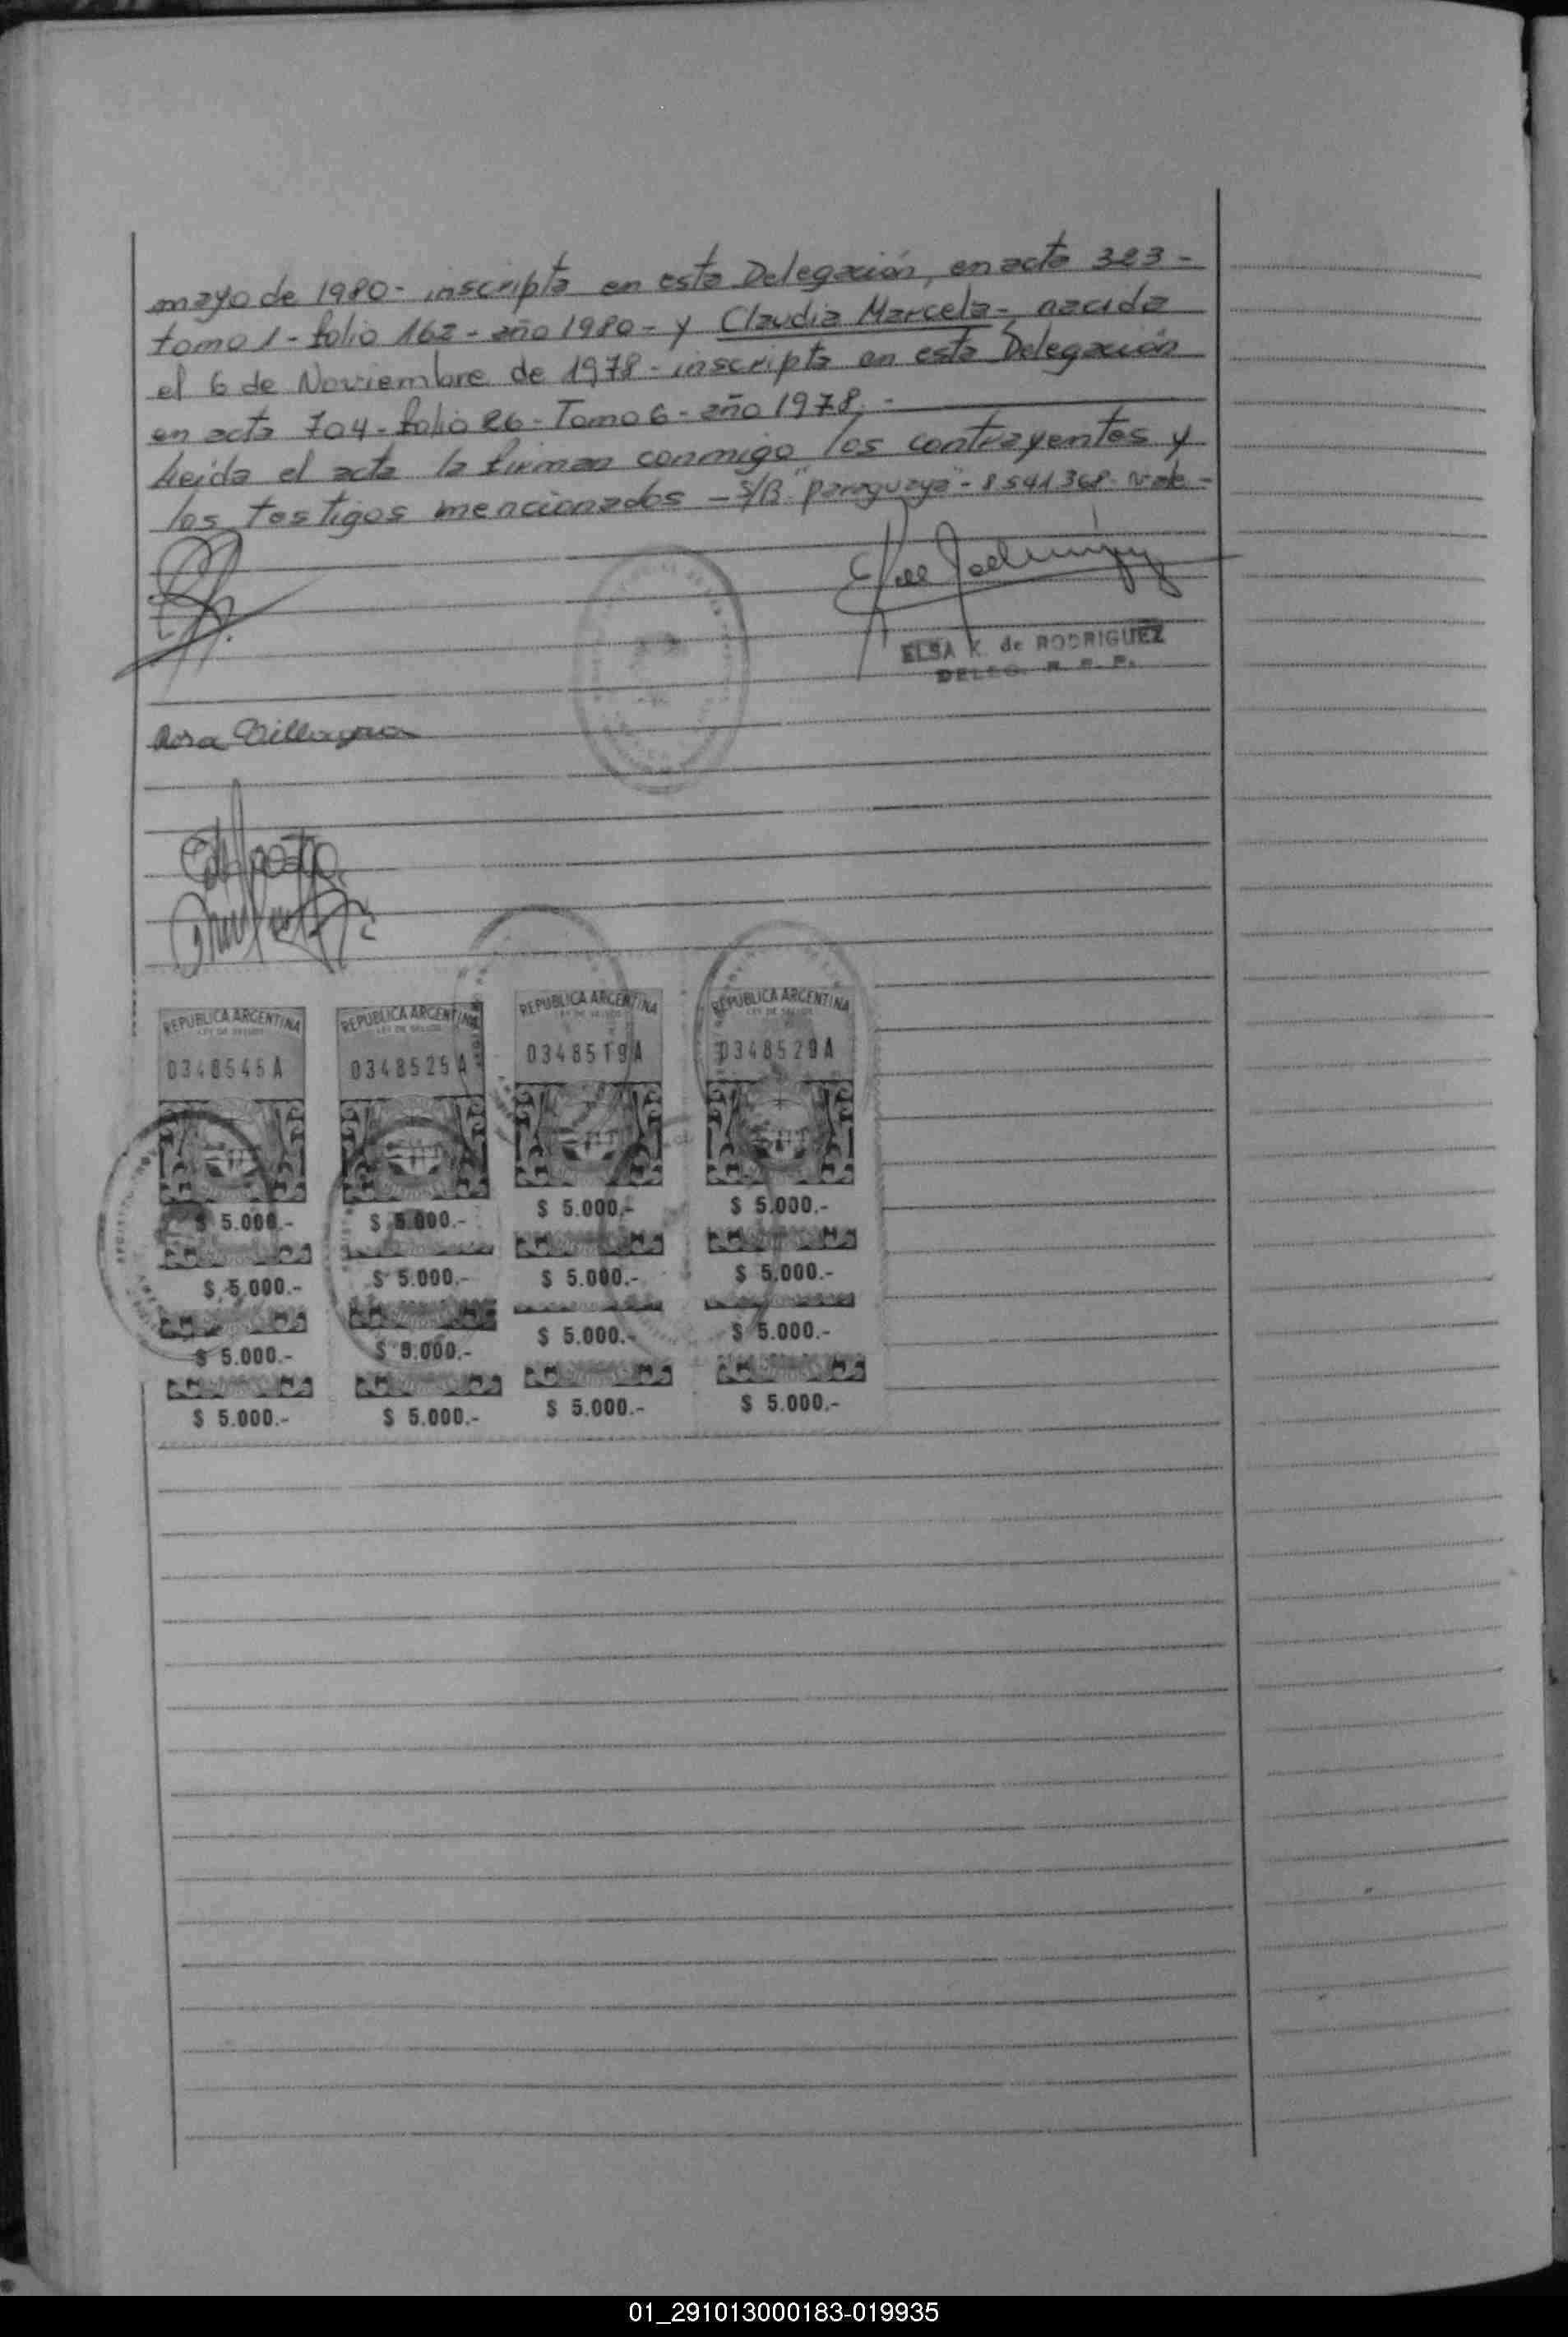 mayo de 1980 - inscripta en esta Delegación, en acta 323 -
tomo 1 - folio 162 - año 1980 - y Claudia Marcela - nacida
el 6 de Noviembre de 1978 - inscripta en esta Delegación
en acta 704 - folio 26 - Tomo 6 - año 1978. -
Leida el acta la firman conmigo los contrayentes y
los testigos mencionados - S/B "paraguaya" - 8541368 - Vale -
ELSA K. de RODRIGUEZ
DELEG. R. E. P.
Rosa Villagra
REPUBLICA ARGENTINA REPUBLICA ARGENTINA REPUBLICA ARGENTINA REPUBLICA ARGENTINA
LEY DE SELLOS LEY DE SELLOS LEY DE SELLOS LEY DE SELLOS
0348545A 0348525A 0348519A 0348529A
$ 5.000.- $ 5.000.- $ 5.000.- $ 5.000.-
$ 5.000.- $ 5.000.- $ 5.000.- $ 5.000.-
$ 5.000.- $ 5.000.- $ 5.000.- $ 5.000.-
$ 5.000.- $ 5.000.- $ 5.000.- $ 5.000.-
01_291013000183-019935